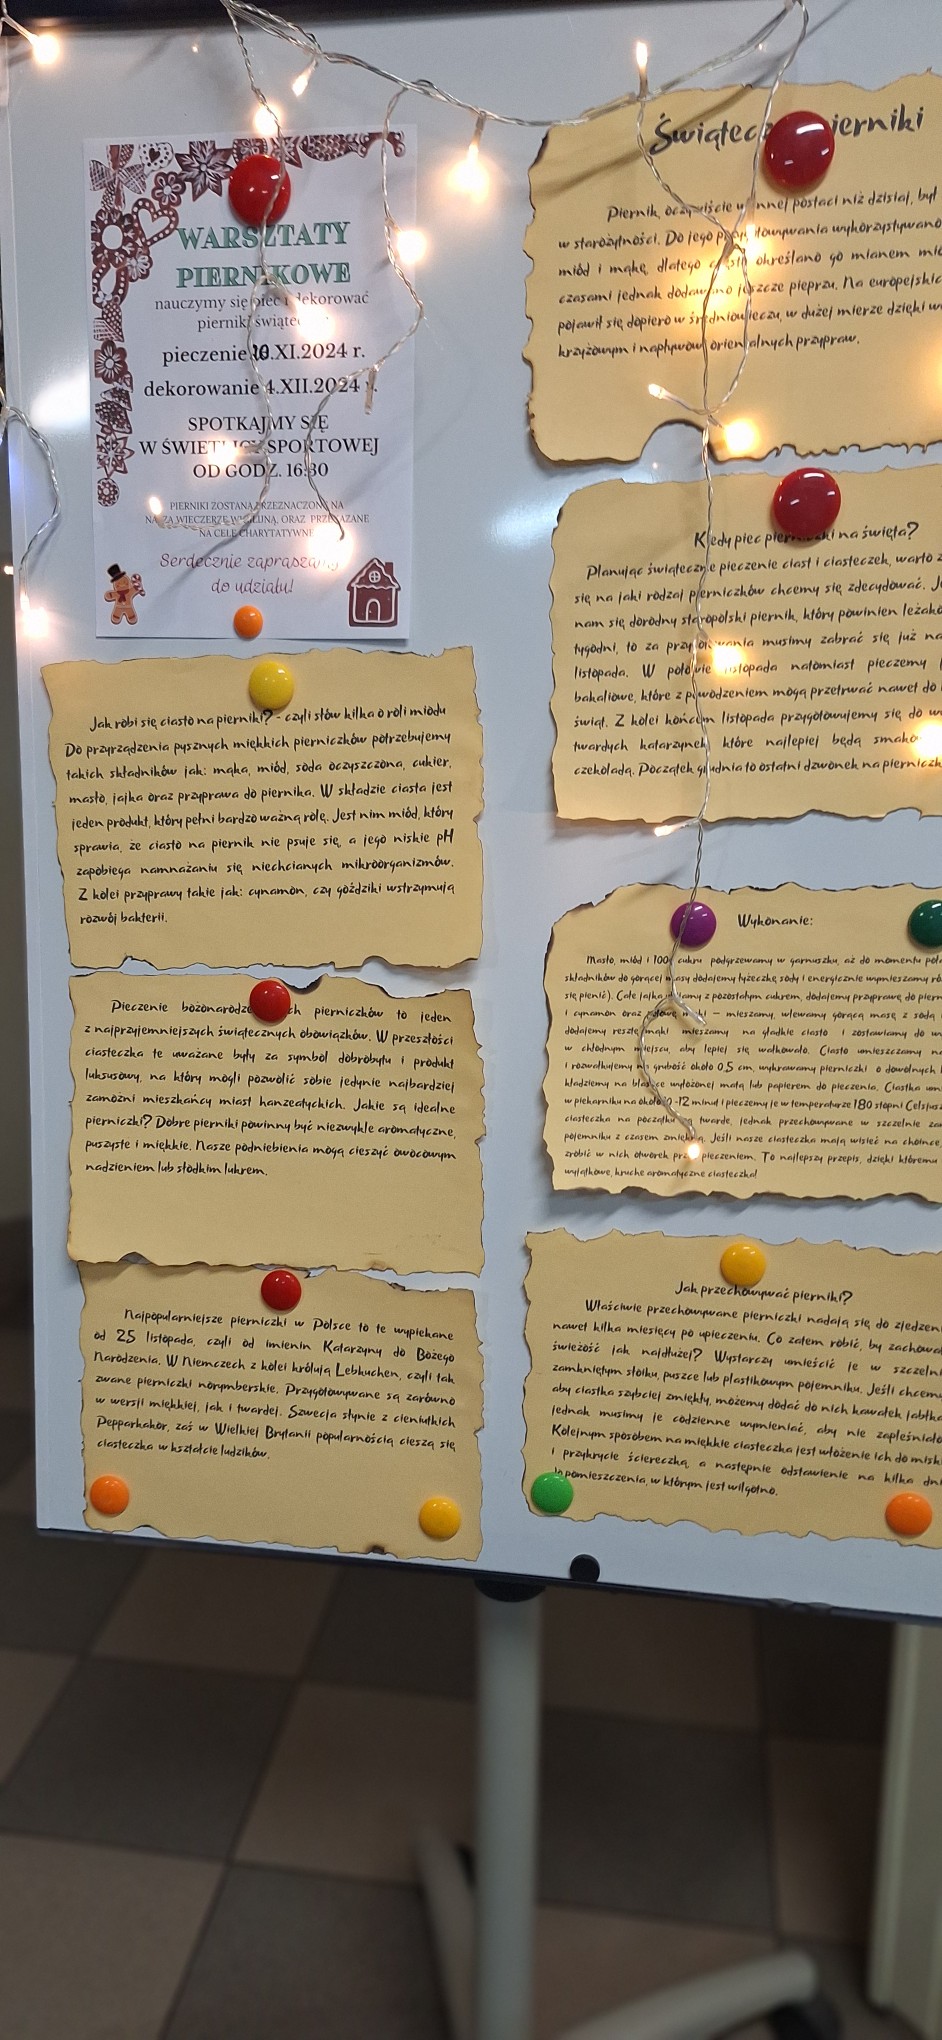 WARSZTATY
PIERNIKOWE
nauczymy się piec i dekorować
pierniki
pieczenie .XI.2024 r.
dekorowanie 4.XII.2024 r.
SPOTKAJMY SIĘ
W ŚWIETLICY SPORTOWEJ
OD GODZ. 16:30
PIERNIKI ZOSTANĄ PRZEZNACZONE NA
WIECZERZĘ WIGILIJNĄ, ORAZ PRZEKAZANE
NA CELE CHARYTATYWNE
Serdecznie zapraszamy
do udziału!
Jak robi się ciasto na pierniki? - czyli słów kilka o roli miodu
Do przyrządzenia pysznych miękkich pierniczków potrzebujemy
takich składników jak: mąka, miód, soda oczyszczona, cukier,
masło, jajka oraz przyprawa do piernika. W składzie ciasta jest
jeden produkt, który pełni bardzo ważną rolę. Jest nim miód, który
sprawia, że ciasto na piernik nie psuje się, a jego niskie pH
zapobiega namnażaniu się niechcianych mikroorganizmów.
Z kolei przyprawy takie jak: cynamon, czy goździki wstrzymują
rozwój bakterii.
Pieczenie pierniczków to jeden
z najprzyjemniejszych świątecznych obowiązków. W przeszłości
ciasteczka te uważane były za symbol dobrobytu i produkt
luksusowy, na który mogli pozwolić sobie jedynie najbardziej
zamożni mieszkańcy miast hanzeatyckich. Jakie są idealne
pierniczki? Dobre pierniki powinny być niezwykle aromatyczne,
puszyste i miękkie. Nasze podniebienia mogą cieszyć owocowym
nadzieniem lub słodkim lukrem.
Najpopularniejsze pierniczki w Polsce to te wypiekane
od 25 listopada, czyli od imienin Katarzyny do Bożego
Narodzenia. W Niemczech z kolei królują Lebkuchen, czyli tak
zwane pierniczki norymberskie. Przygotowywane są zarówno
w wersji miękkiej, jak i twardej. Szwecja słynie z cieniutkich
Pepparkakor, zaś w Wielkiej Brytanii popularnością cieszą się
ciasteczka w kształcie ludzików.
Piernik, oczywiście w innej postaci niż dzisiaj, był
w starożytności. Do jego przygotowywania wykorzystywano
miód i mąkę, dlatego często określano go mianem
czasami jednak dodawano jeszcze pieprzu. Na
pojawił się dopiero w średniowieczu, w dużej mierze dzięki
krzyżowym i napływowi orientalnych przypraw.
Kiedy piec pierniczki na święta?
Planując świąteczne pieczenie ciast i ciasteczek, warto
się na jaki rodzaj pierniczków chcemy się zdecydować.
nam się dorodny staropolski piernik, który powinien
tygodni, to za przygotowania musimy zabrać się już na
listopada. W połowie listopada natomiast pieczemy
bakaliowe, które z powodzeniem mogą przetrwać nawet do
świąt. Z kolei końcem listopada przygotowujemy się do
twardych katarzynek, które najlepiej będą
czekoladą. Początek grudnia to ostatni dzwonek na
Wykonanie:
Masło, miód i 100 cukru podgrzewamy w garnuszku, aż do momentu
składników do gorącej masy dodajemy łyżeczkę sody i energicznie wymieszamy
się pienić). Całe jajka z pozostałym cukrem, dodajemy przyprawę do
i cynamon oraz połowę mąki – mieszamy, wlewamy gorącą masę z sodą
dodajemy resztę mąki mieszamy na gładkie ciasto i zostawiamy do
w chłodnym miejscu, aby lepiej się wałkowało. Ciasto umieszczamy
i rozwałkujemy na grubość około 0,5 cm, wykrawamy pierniczki o dowolnych
kładziemy na blaszce wyłożonej matą lub papierem do pieczenia. Ciastka
w piekarniku na około 10-12 minut i pieczemy je w temperaturze 180 stopni
ciasteczka na początku są twarde, jednak przechowywane w szczelnie
pojemniku z czasem zmiękną. Jeśli nasze ciasteczka mają wisieć na choince,
zrobić w nich otworek przed pieczeniem. To najlepszy przepis, dzięki któremu
wyjątkowe, kruche aromatyczne ciasteczka!
Jak przechowywać pierniki?
Właściwie przechowywane pierniczki nadają się do zjedzenia
nawet kilka miesięcy po upieczeniu. Co zatem robić, by
świeżość jak najdłużej? Wystarczy umieścić je w
zamkniętym słoiku, puszce lub plastikowym pojemniku. Jeśli
aby ciastka szybciej zmiękły, możemy dodać do nich kawałek
jednak musimy je codzienne wymieniać, aby nie
Kolejnym sposobem na miękkie ciasteczka jest włożenie ich do
i przykrycie ściereczką, a następnie odstawienie na kilka dni
do pomieszczenia, w którym jest wilgotno.